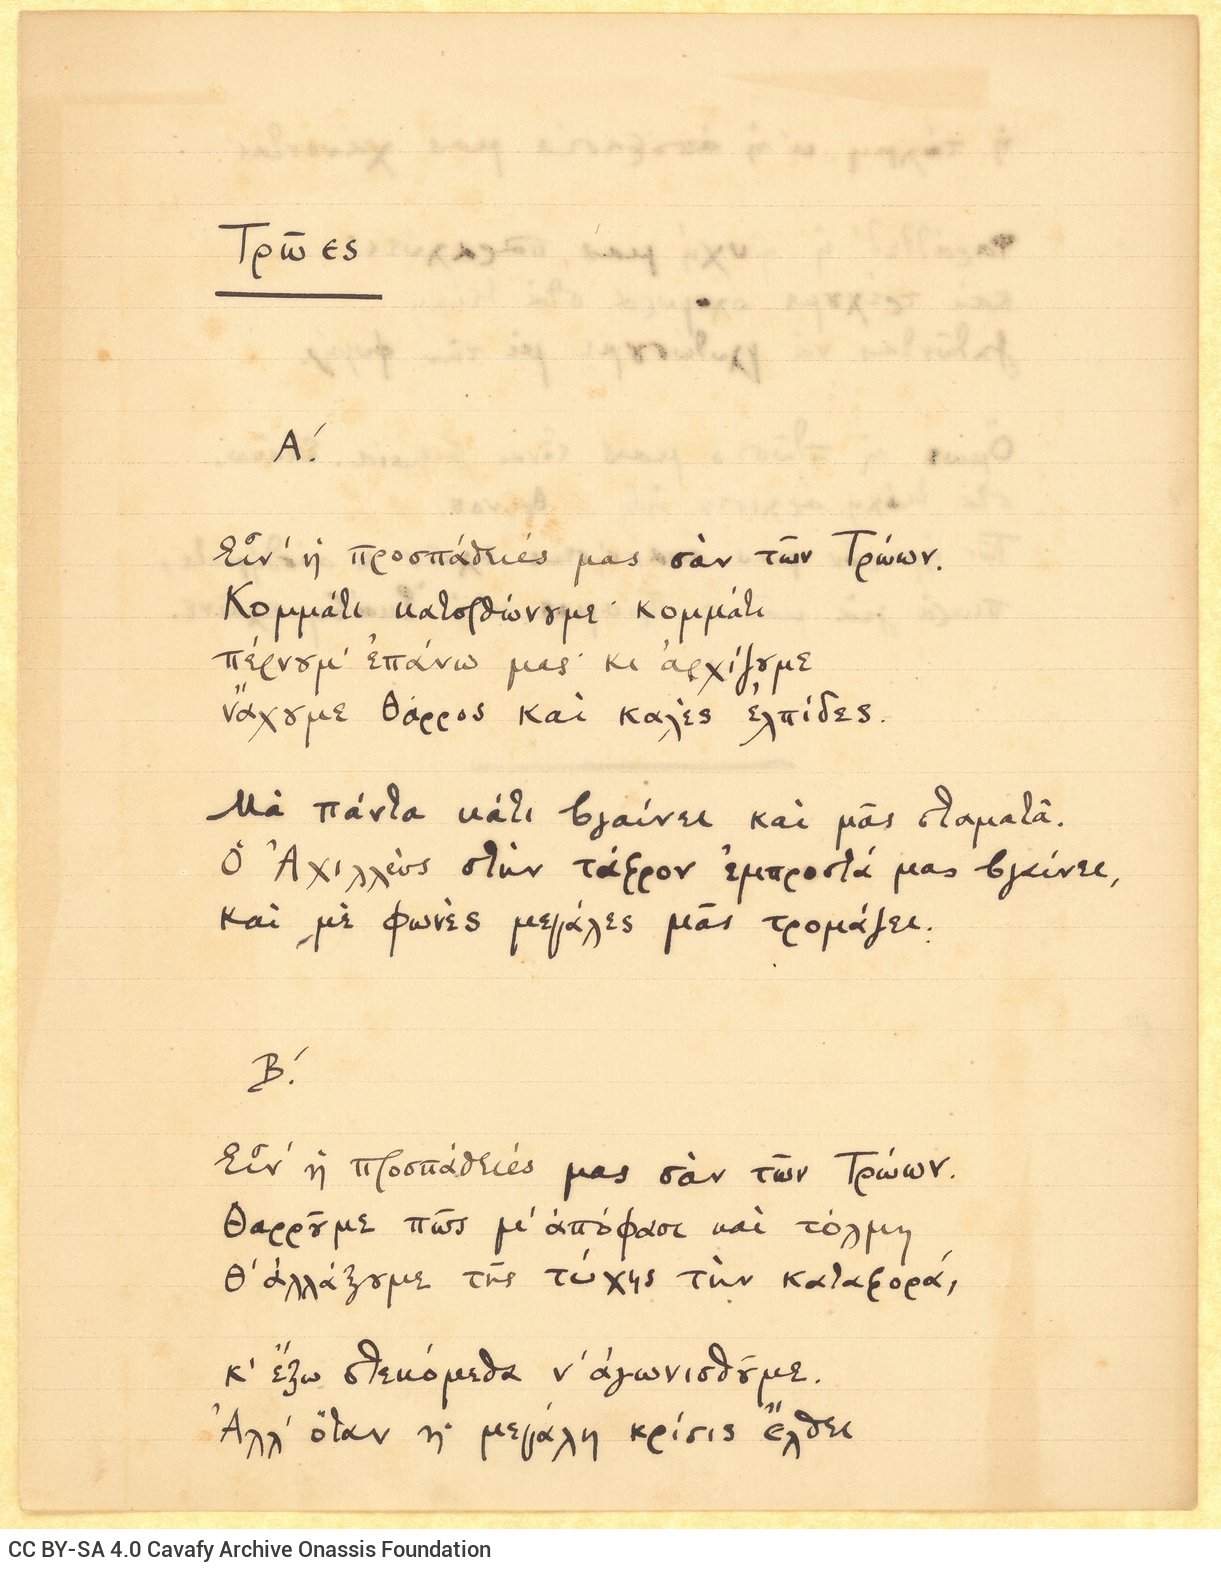 Τρῶες
Α΄.
Εἶν' ἡ προσπάθειές μας σὰν τῶν Τρώων.
Κομμάτι κατορθώνουμε· κομμάτι
πέρνουμ' ἐπάνω μας· κι ἀρχίζουμε
νἄχουμε θάρρος καὶ καλὲς ἐλπίδες.
Μὰ πάντα κάτι βγαίνει καὶ μᾶς σταματᾶ.
Ὁ Ἀχιλλεὺς στὴν τάφρον ἐμπροστά μας βγαίνει,
καὶ μὲ φωνὲς μεγάλες μᾶς τρομάζει.
Β΄.
Εἶν' ἡ προσπάθειές μας σὰν τῶν Τρώων.
Θαρροῦμε πῶς μ' ἀπόφασι καὶ τόλμη
θ' ἀλλάξουμε τῆς τύχης τὴν καταφορά,
κ' ἔξω στεκόμεθα ν' ἀγωνισθοῦμε.
Ἀλλ' ὅταν ἡ μεγάλη κρίσις ἔλθει
CC BY-SA 4.0 Cavafy Archive Onassis Foundation